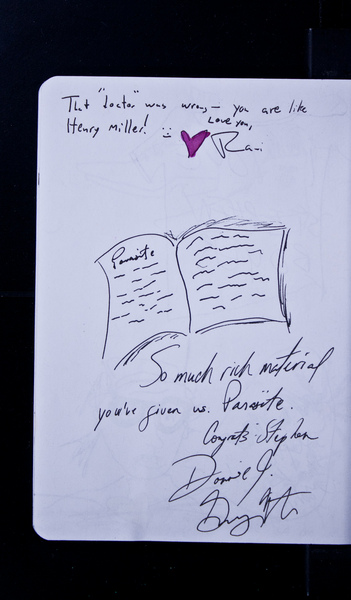 That "doctor" was wrong — you are like
Henry Miller! :)
Love you,
Rani
Parasite
So much rich material
you've given us. Parasite.
Congrats Stephen
Donnie J.